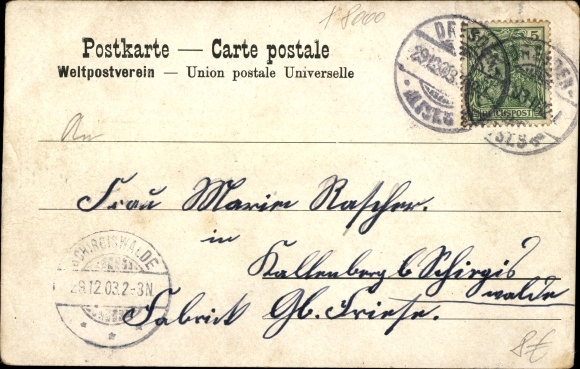 1 8000
Postkarte — Carte postale
Weltpostverein — Union postale Universelle
DRESDEN
29.12.03
5
REICHSPOST
An
Frau Marie Rascher.
in
Kallenberg b Schirgis
walde
Fabrick Gb. Friese.
SCHIRGISWALDE
29.12.03.2-3N
8€